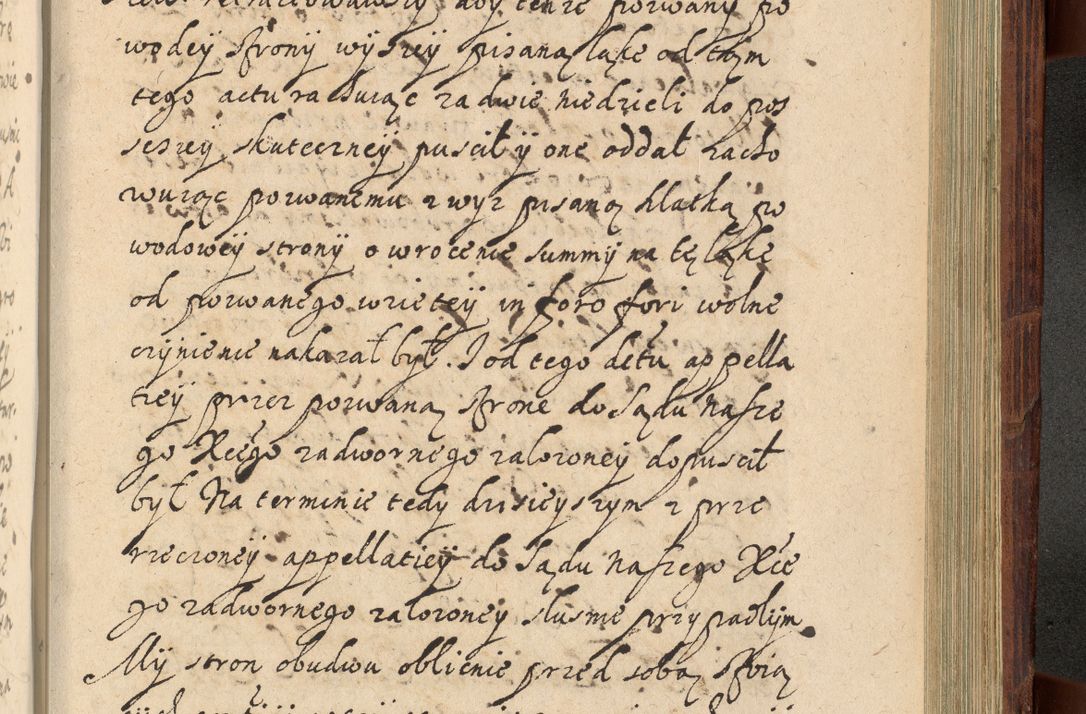 aby tenze pozwany po
wodey strony wyszey pisaną łąke od tąm
tego actu rachuiąc za dwie niedzieli do pos
sesziey skuteczney puscił y one oddał zacho
wuiąc pozwanemu z wyz pisaną Matką po
wodowey strony o wrocenie summy na tę łąkę
od pozwanego wzietey in foro fori wolne
czynienie nakazał był. I od tego detu appella
tiey przez pozwaną strone do Sądu nasze
go Xcego zadwornego załozoney dopuscił
był Na terminie tedy dzisieyszym z prze
rzeczoney appellatiey do Sądu naszego Xce
go zadwornego załozoney slusnie przypadłym
My stron obudwu oblicnie przed sobą stoią